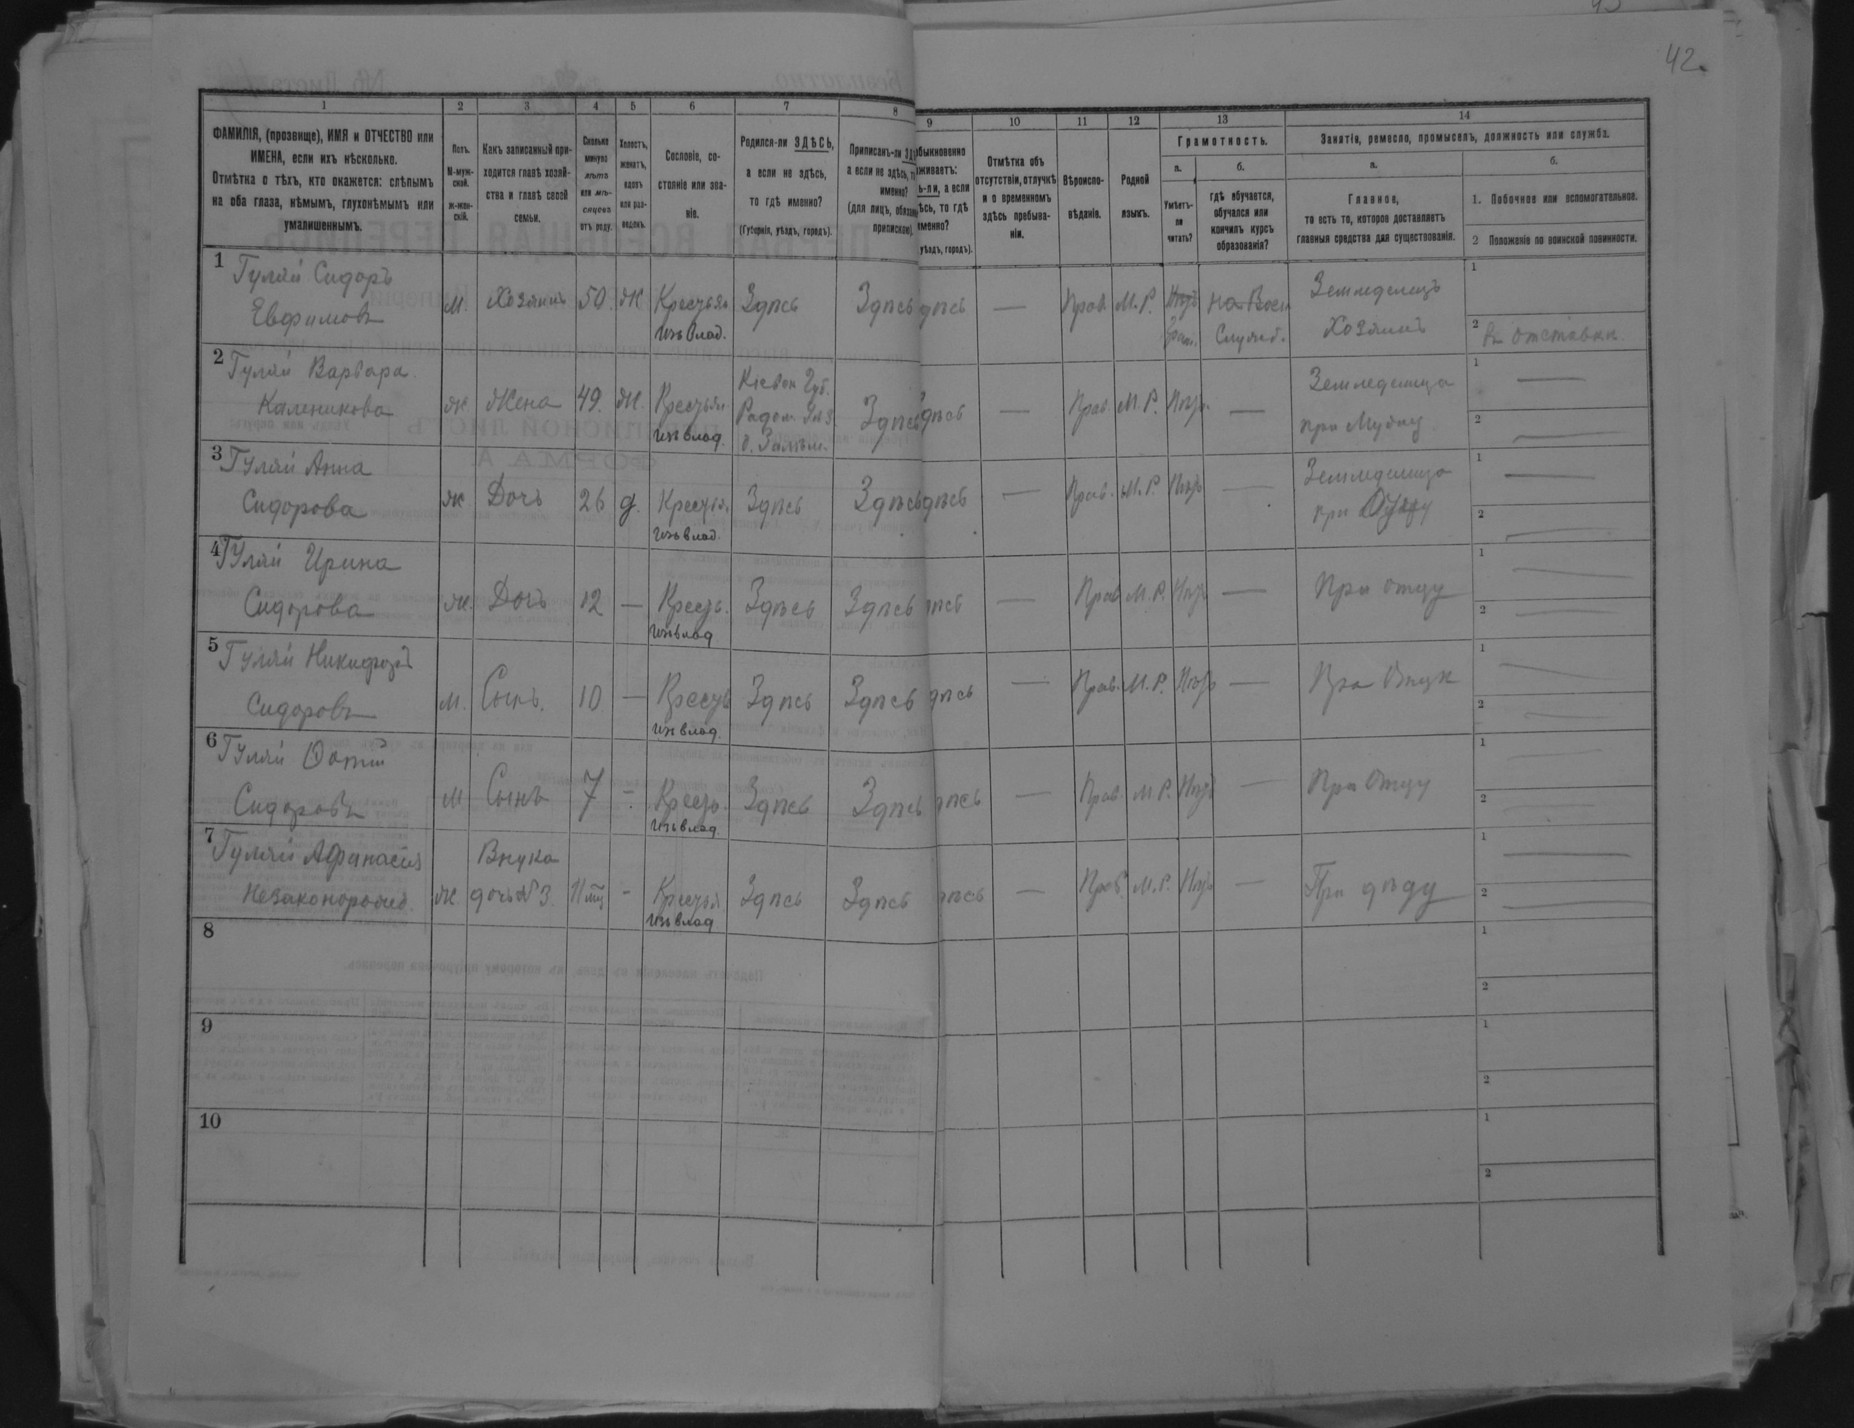 42.
1 2 3 4 5 6 7 8 9 10 11 12 13 14
ФАМИЛІЯ, (прозвище), ИМЯ и ОТЧЕСТВО или
ИМЕНА, если ихъ нѣсколько.
Отмѣтка о тѣхъ, кто окажется: слѣпымъ
на оба глаза, нѣмымъ, глухонѣмымъ или
умалишеннымъ.
Полъ.
М-муж-
ской.
Ж-жен-
скій.
Какъ записанный при-
ходится главѣ хозяй-
ства и главѣ своей
семьи.
Сколько
минуло
лѣтъ
или мѣ-
сяцевъ
отъ роду.
Холостъ,
женатъ,
вдовъ
или раз-
веденъ.
Сословіе, со-
стояніе или зва-
ніе.
Родился-ли ЗДѢСЬ,
а если не здѣсь,
то гдѣ именно?
(Губернія, уѣздъ, городъ).
Приписанъ-ли
а если не здѣсь,
именно?
(для лицъ,
припискою).
обыкновенно
живаетъ:
ь-ли, а если
ѣсь, то гдѣ
именно?
уѣздъ, городъ).
Отмѣтка объ
отсутствіи, отлучкѣ
и о временномъ
здѣсь пребыва-
ніи.
Вѣроиспо-
вѣданіе.
Родной
языкъ.
Грамотность.
а.
Умѣетъ-
ли
читать?
б.
гдѣ обучается,
обучался или
кончилъ курсъ
образованія?
Занятія, ремесло, промыселъ, должность или служба.
а.
Главное,
то есть то, которое доставляетъ
главныя средства для существованія.
б.
1. Побочное или вспомогательное.
2 Положеніе по воинской повинности.
1 Гуляй Сидоръ
Евфимовъ
м. Хозяинъ 50. ж Крестьян Здѣсь Здѣсь Прав. М. Р. на Воен
изъ влад.
Служб.
Земледелецъ
Хозяинъ
1
2 В отставки.
2 Гуляй Варвара
Каленикова
ж Жена 49. ж. Крестьян
изъ влад.
Кіевск Губ.
Радом.
Здѣсь — Прав. М. Р. —
Земледелица
при
1 —
2 —
3 Гуляй Анна
Сидорова
ж Дочь 26 д. Крестья.
изъ влад.
Здѣсь Здѣсь — Прав. М. Р. —
Земледелица
при
1 —
2 —
4 Гуляй Ирина
Сидорова
ж. Дочь 12 — Кресть.
изъ влад
Здѣсь Здѣсь — Прав. М. Р. — При отцу
1 —
2 —
5 Гуляй Никифоръ
Сидоровъ
м. Сынъ. 10 — Кресть
изъ влад.
Здѣсь Здѣсь — Прав. М. Р. — При
1 —
2 —
6 Гуляй
Сидоровъ
м Сынъ 7 - Кресть.
изъ влад.
Здѣсь Здѣсь — Прав. М. Р. — При Отцу
1 —
2 —
7 Гуляй Афанасія
Незаконорожд.
ж Внука
дочь № 3 11 мц - Крестья
изъ влад
Здѣсь Здѣсь — Прав. М. Р. — При дѣду
1 —
2 —
8
1
2
9
1
2
10
1
2